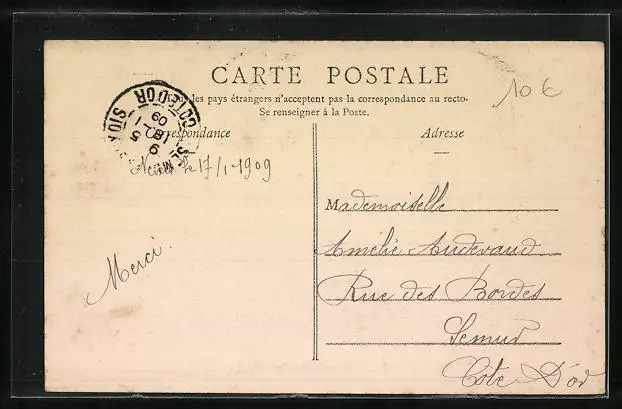 CARTE POSTALE
Tous les pays étrangers n'acceptent pas la correspondance au recto.
Se renseigner à la Poste.
10 €
COTE D'OR
18
5
09
Correspondance
Adresse
le 17/1-1909
Merci.
Mademoiselle
Amélie Audevaud
Rue des Bordes
Semur
Côte D'or